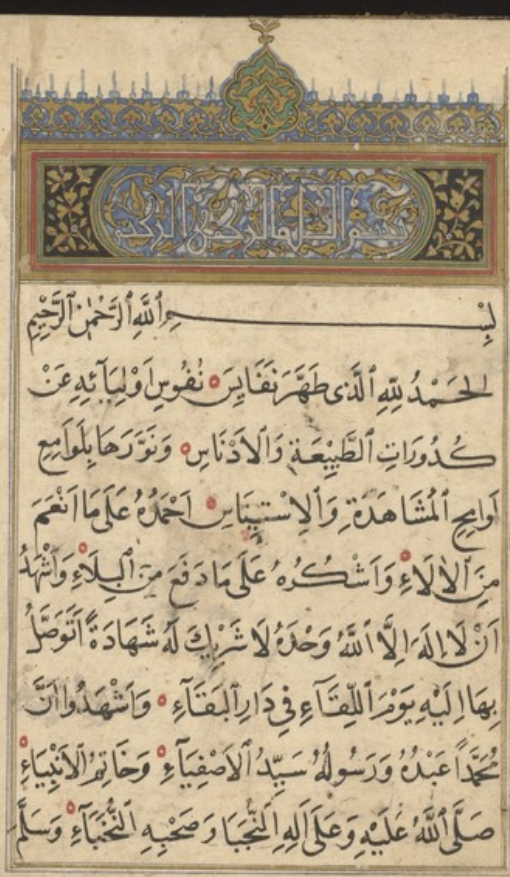 بسم الله الرحمن الرحيم
بِسْمِ ٱللَّهِ ٱلرَّحْمٰنِ ٱلرَّحِيْمِ
الحَمْدُ لِلّٰهِ ٱلَّذِى طَهَّرَ نَفَايِسَ نُفُوسِ اَوْلِيَآئِهِ عَنْ
كُدُورَاتِ ٱلطَّبِيْعَةِ وَالْاَدْنَاسِ وَنَوَّرَهَا بِلَوَامِعِ
لَوَايِحِ ٱلْمُشَاهَدَةِ وَٱلْاِسْتِيْنَاسِ اَحْمَدُهُ عَلَى مَا اَنْعَمَ
مِنَ ٱلْاٰلَاءِ وَاَشْكُرُهُ عَلَى مَا دَفَعَ مِنَ ٱلْبِلَاءِ وَاَشْهَدُ
اَنْ لَا اِلٰهَ اِلَّا ٱللَّهُ وَحْدَهُ لَا شَرِيْكَ لَهُ شَهَادَةً اَتَوَصَّلُ
بِهَا اِلَيْهِ يَوْمَ ٱللِّقَآءِ فِي دَارِ ٱلْبَقَآءِ وَاَشْهَدُ وا اَنَّ
مُحَمَّدًا عَبْدُهُ وَرَسُولُهُ سَيِّدُ ٱلْاَصْفِيَآءِ وَخَاتِمُ ٱلْاَنْبِيَاءِ
صَلَّى ٱللَّهُ عَلَيْهِ وَعَلَى اٰلِهِ ٱلنُّجَبَا وَصَحْبِهِ ٱلنُّخَبَآءِ وَسَلَّمَ